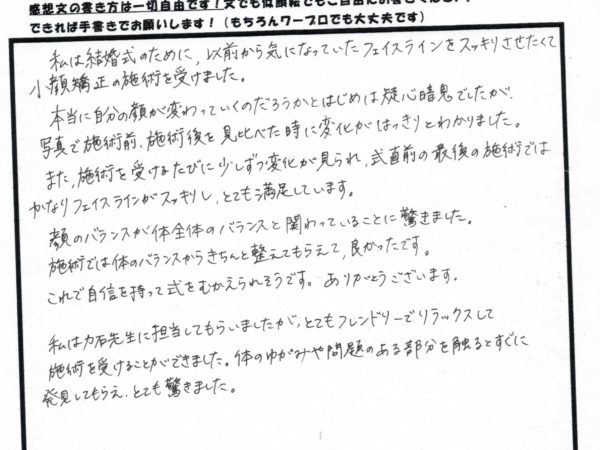 感想文の書き方は一切自由です!文でも似顔絵でもご自由にお書きください
できれば手書きでお願いします!(もちろんワープロでも大丈夫です)
私は結婚式のために、以前から気になっていたフェイスラインをスッキリさせたくて
小顔矯正の施術を受けました。
本当に自分の顔が変わっていくのだろうかとはじめは疑心暗鬼でしたが、
写真で施術前、施術後を見比べた時に変化がはっきりとわかりました。
また、施術を受けるたびに少しずつ変化が見られ、式直前の最後の施術では
かなりフェイスラインがスッキリし、とても満足しています。
顔のバランスが体全体のバランスと関わっていることに驚きました。
施術では体のバランスからきちんと整えてもらえて、良かったです。
これで自信を持って式をむかえられそうです。ありがとうございます。
私は力石先生に担当してもらいましたが、とてもフレンドリーでリラックスして
施術を受けることができました。体のゆがみや問題のある部分を触るとすぐに
発見してもらえ、とても驚きました。